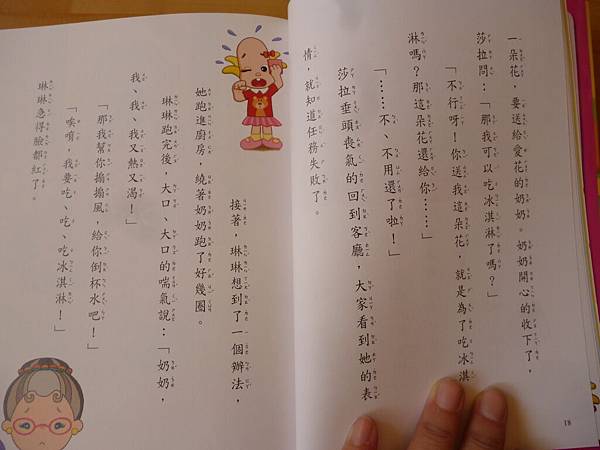 一朵花，要送給愛花的奶奶。奶奶開心的收下了，
莎拉問：「那我可以吃冰淇淋了嗎？」
「不行呀！你送我這朵花，就是為了吃冰淇
淋嗎？那這朵花還給你……」
「……不、不用還了啦！」
莎拉垂頭喪氣的回到客廳，大家看到她的表
情，就知道任務失敗了。
18
接著，琳琳想到了一個辦法，
她跑進廚房，繞著奶奶跑了好幾圈。
琳琳跑完後，大口、大口的喘氣說：「奶奶，
我、我、我又熱又渴！」
「那我幫你搧搧風，給你倒杯水吧！」
「唉唷，我要吃、吃、吃冰淇淋！」
琳琳急得臉都紅了。